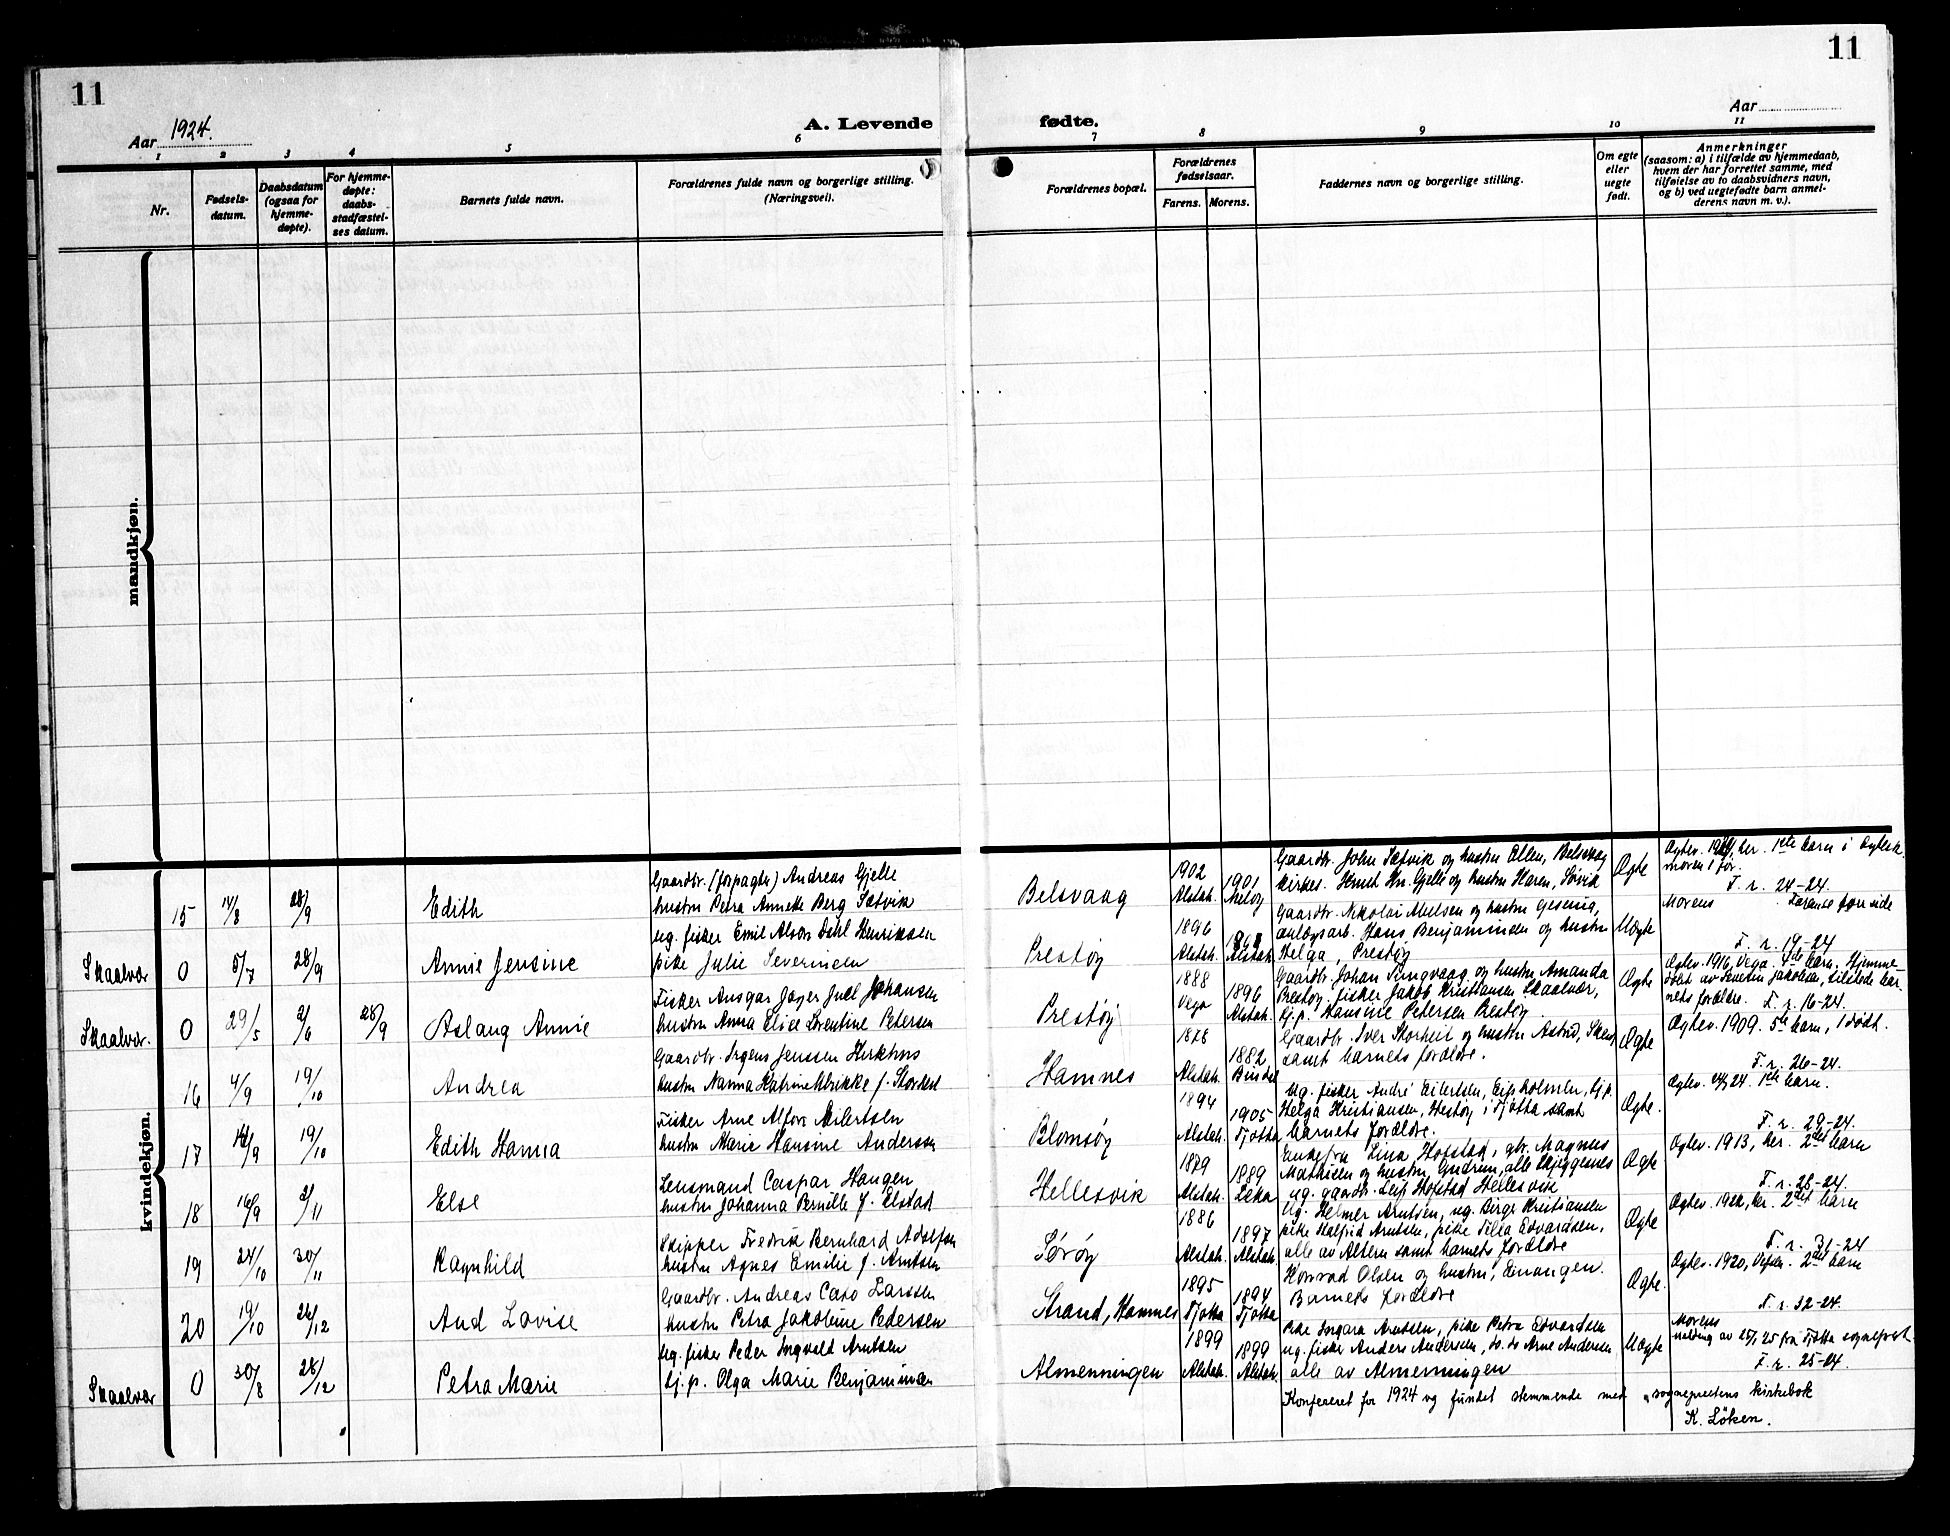 11
Aar 1924.
A. Levende
1
2
3
4
5
6
Nr.
Fødsels-
datum.
Daabsdatum
(ogsaa for
hjemme-
døpte).
For hjemme-
døpte:
daabs-
stadfæstel-
ses datum.
Barnets fulde navn.
Forældrenes fulde navn og borgerlige stilling.
(Næringsvei).
mandkjøn.
kvindekjøn.
Gaardbr. (forpagter) Andreas Gjelle
15 14/8 28/9 Edith hustru Petra Annette Berg Sætvik
ug. fisker Emil Alson Dahl Henriksen
Skaalvær 0 5/7 28/9 Annie Jensine pike Julie Severinsen
Fisker Ansgar Jøger Juell Johansen
Skaalvær. 0 29/5 2/6 28/9 Aslaug Annie hustru Anna Elise Lorentine Petersen
Gaardbr. Irgens Jenssen
16 4/9 19/10 Andrea hustru Nanna Katrine Ulrikke f. Storheil
Fisker Arne Alfon Eilertsen
17 14/9 19/10 Edith Hanna hustru Marie Hansine Anderssen
Lensmand Caspar Haugen
18 16/9 2/11 Else hustru Johanna Pernille f. Elstad
Skipper Fredrik Bernhard Adolfsen
19 24/10 30/11 Ragnhild hustru Agnes Emilie f. Arntsen
Gaardbr. Andreas Caso Larssen
20 19/10 26/12 Aud Lovise hustru Petra Jakobine Pedersen
Ug. fisker Peder Ingvald Arntsen
Skaalvær 0 30/8 28/12 Petra Marie tj.p. Olga Marie Benjaminsen
11
Aar
fødte.
7
8
9
10
11
Forældrenes bopæl.
Forældrenes
fødselsaar.
Farens. Morens.
Faddernes navn og borgerlige stilling.
Om egte
eller
uegte
født.
Anmerkninger
(saasom: a) i tilfælde av hjemmedaab,
hvem der har forrettet samme, med
tilføielse av to daabsvidners navn,
og b) ved uegtefødte barn anmel-
derens navn m. v.).
Belsvaag
1902 Alstah. 1901 Meløy
Gaardbr. John Sætvik og hustru Ellen, Belsvaag
kirkes. Hernst Hn. Gjelle og hustru Karen, Søvik
Ægte
Ægtev. 1924, her. 1ste barn i Ægtesk.
moren 1 før.
F. r. 24-24.
Prestøy
1896 Alstah. Alstah.
Gaardbr. Nikolai Nielsen og hustru Gesenia,
anlægsarb. Hans Benjaminsen og hustru
Helga, Prestøy
Uægte
Morens
F. r. 19-24
Prestøy
1888 Vega 1896 Alstah.
Gaardbr. Johan Tingvaag og hustru Amanda
Prestøy, fisker Jakob Kristiansen Skaalvær,
tj.p. Hansine Petersen Prestøy.
Ægte
Ægtev. 1916, Vega. 4de barn. Hjemme-
døbt av Severin Jakobsen, tilstede bar-
nets forældre. F. r. 16-24.
Hamnes
1878 Alstah. 1882 Bindal
Gaardbr. Iver Storheil og hustru Astrid,
samt barnets forældre.
Ægte
Ægtev. 1909. 5te barn, 1 dødt.
F. r. 26-24.
Blomsøy
1894 Alstah. 1905 Tjøtta
Ug. fisker André Eilertsen, tj.p.
Helga Kristiansen, Hestøy i Tjøtta samt
barnets forældre.
Ægte.
Ægtev. 24. 1ste barn.
F. r. 29-24.
Hellesvik
1879 Alstah. 1889 Leka
Enkefru Lina Hofstad, gbr. Magnus
Mathisen og hustru Gudrun, alle Skjeggesnes
ug. gaardbr. Leif Hofstad Hellesvik
Ægte
Ægtev. 1913, her. 2det barn
F. r. 28-24.
Sørøy
1886 Alstah. 1897 Alstah.
Ug. Helmer Arntsen, ug. Birger Kristiansen
pike Halfrid Arntsen, pike Tilla Edvardsen,
alle av Alteren samt barnets forældre
Ægte
Ægtev. 1922, her. 2det barn
F. r. 31-24
Strand, Hamnes
1895 Tjøtta 1894 Tjøtta
Konrad Olsen og hustru, Einangen.
Barnets forældre
Ægte.
Ægtev. 1920, Vefsn. 2det barn
F. r. 32-24.
Almenningen
1899 Alstah. 1899 Alstah.
Pike Ingara Arntsen, pike Petra Edvardsen
ug. fisker Anders Andersen, do. do Arne Andersen
alle av Almenningen
Uægte
Morens
melding av 25/1 25 fra Tjøtta sognepræst.
F. r. 25-24.
Konfereret for 1924 og fundet stemmende med sogneprestens kirkebok
K. Løken.